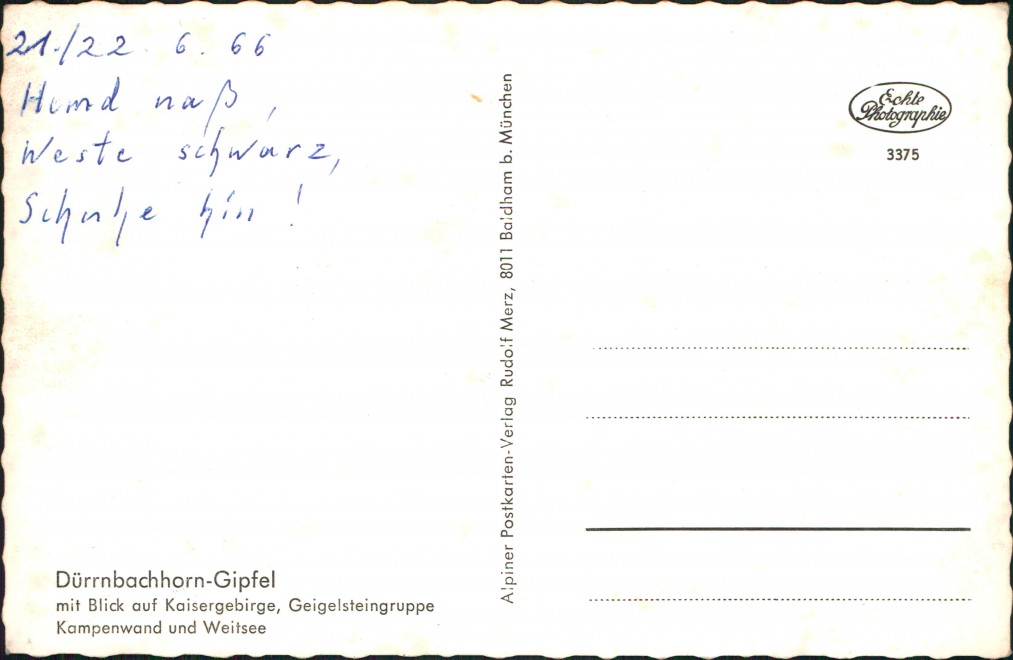 21./22. 6. 66
Hemd naß,
Weste schwarz,
Schuhe hin!
Dürrnbachhorn-Gipfel
mit Blick auf Kaisergebirge, Geigelsteingruppe
Kampenwand und Weitsee
Alpiner Postkarten-Verlag Rudolf Merz, 8011 Baldham b. München
Echte
Photographie
3375